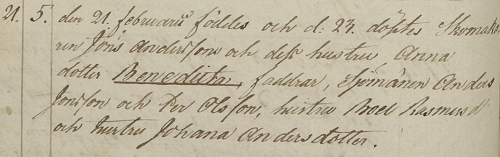 21. 5. den 21. februarii föddes och d. 23. döptes Skomak=
ren Jöns Andersson och dess hustru Anna
dotter Benedicta, faddrar, Sjömannen Anders
Jonsson och Per Olsson, hustru Boel Rasmusd
och hustru Johana Andersdotter.